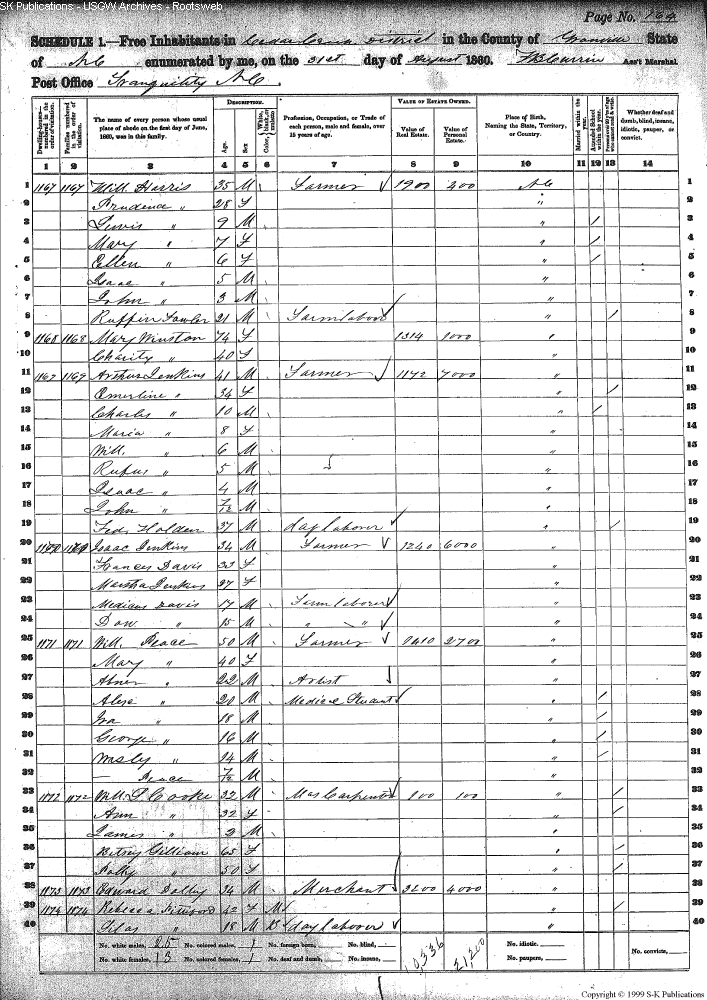 SK Publications - USGW Archives - Rootsweb
Page No. 164
SCHEDULE 1.—Free Inhabitants in Cedar Creek District in the County of Granville State
of N C enumerated by me, on the 31st day of August 1860. Ass't Marshal
Post Office Tranquility N C
Dwelling-houses numbered in the order of visitation. Families numbered in the order of visitation. The name of every person whose usual place of abode on the first day of June, 1860, was in this family. DESCRIPTION. Age. Sex. Color, White, black, or mulatto Profession, Occupation, or Trade of each person, male and female, over 15 years of age. VALUE OF ESTATE OWNED. Value of Real Estate. Value of Personal Estate. Place of Birth, Naming the State, Territory, or Country. Married within the year. Attended School within the year. Whether deaf and dumb, blind, insane, idiotic, pauper, or convict.
1 2 3 4 5 6 7 8 9 10 11 12 13 14
1 1167 1167 Will Harris 35 M Farmer ✓ 1900 200 N C 1
2 Prudence " 28 F " 2
3 Lewis " 9 M " / 3
4 Mary " 7 F " / 4
5 Ellen " 6 F " / 5
6 Isaac " 5 M " 6
7 John " 3 M " 7
8 Ruffin Fowler 21 M Farm labor ✓ " / 8
9 1168 1168 Mary Winston 74 F 1314 1000 " 9
10 Charity " 40 F " 10
11 1169 1169 Arthur Jenkins 41 M Farmer ✓ 1172 7000 " 11
12 Emerline " 34 F " / 12
13 Charles " 10 M " / 13
14 Maria " 8 F " 14
15 Will. " 6 M " 15
16 Rufus " 5 M " 16
17 Isaac " 4 M " 17
18 John " 7/12 M " 18
19 Fed. Holden 37 M day laborer ✓ " / 19
20 1170 1170 Isaac Jenkins 34 M Farmer ✓ 1240 6000 " 20
21 Frances Davis 33 F " 21
22 Martha Jenkins 27 F " 22
23 Medicus Davis 17 M Farm laborer ✓ " 23
24 Dow. " 15 M " " ✓ " 24
25 1171 1171 Will. Peace 50 M Farmer ✓ 1410 2700 " 25
26 Mary " 40 F " 26
27 Abner " 22 M Artist ✓ " 27
28 20 M Medical Student ✓ " / 28
29 Ira " 18 M " / 29
30 George " 16 M " / 30
31 Wesly " 14 M " / 31
32 — Peace 7/12 M " 32
33 1172 1172 Will. Cooke 32 M Mas Carpenter ✓ 100 100 " / 33
34 Ann " 32 F " / 34
35 James " 2 M " 35
36 Betsey Gilliam 65 F " / 36
37 Polly " 50 F " / 37
38 1173 1173 Edward Dalby 34 M Merchant ✓ 3200 4000 " 38
39 1174 1174 Rebecca 42 F M " / 39
40 Silas " 18 M B day laborer ✓ " 40
No. white males, 25 No. colored males, 1 No. foreign born, No. blind, 10,336 21,200 No. idiotic, No. convicts,
No. white females, 13 No. colored females, 1 No. deaf and dumb, No. insane, No. paupers,
Copyright © 1999 S-K Publications